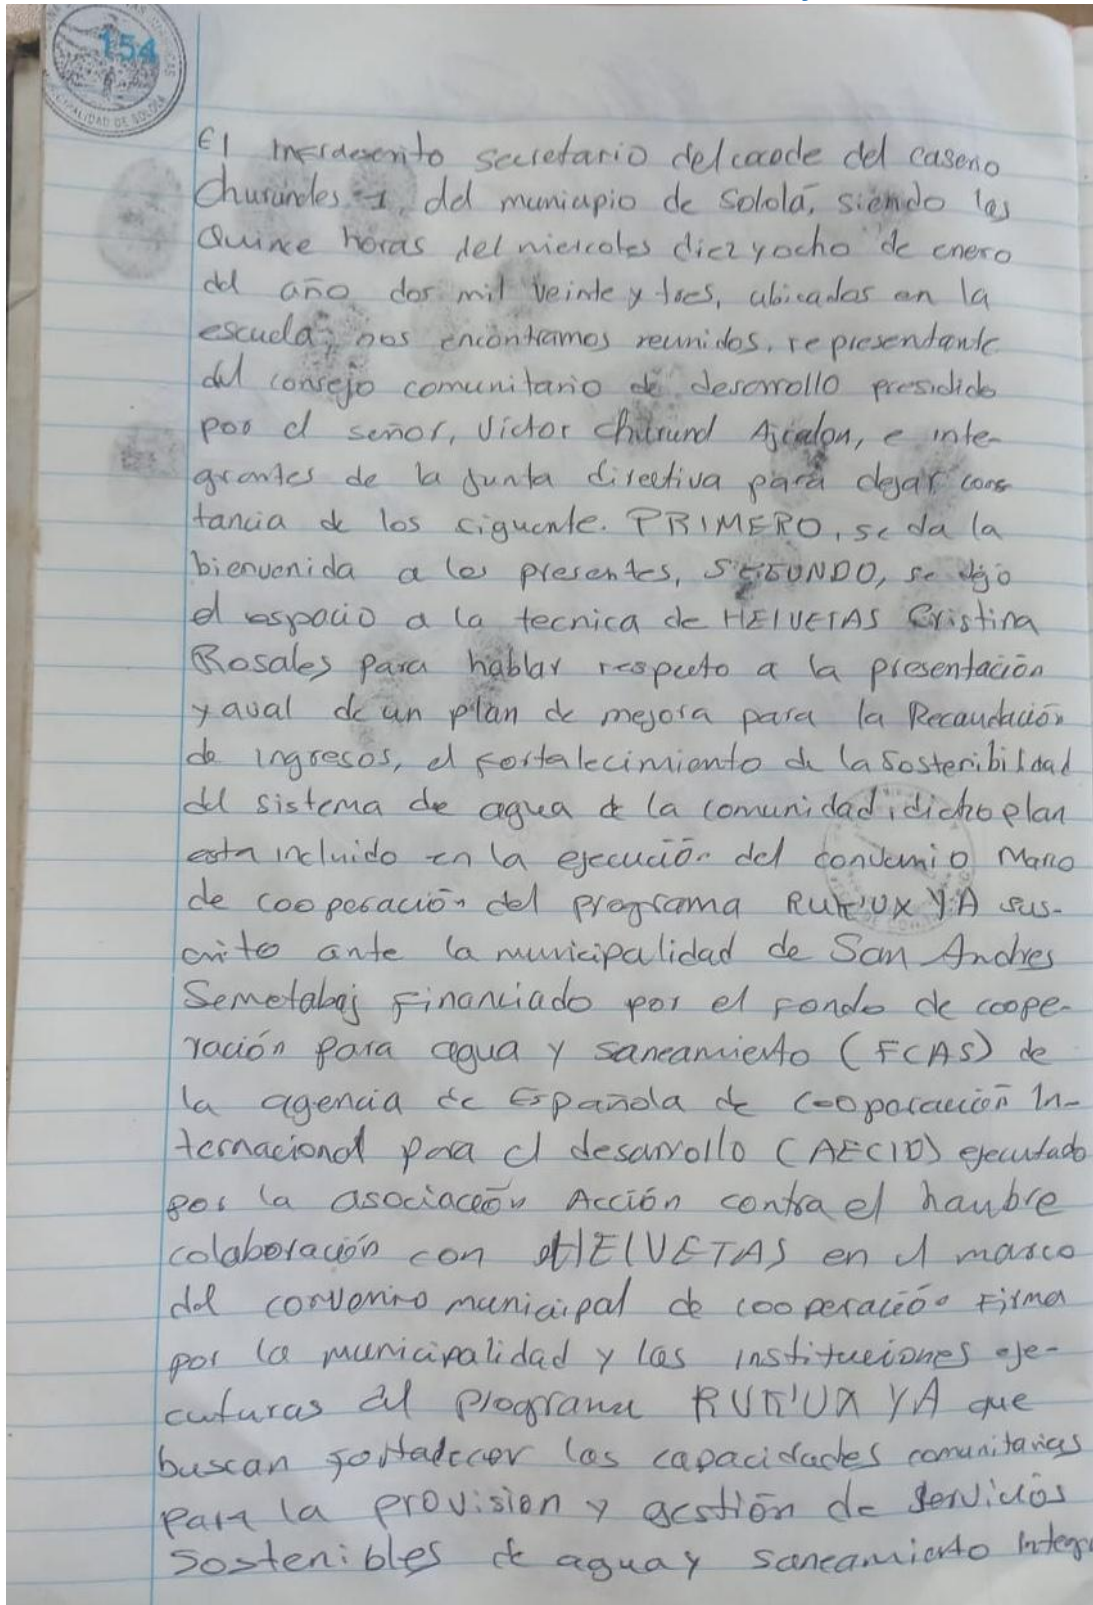 154
MUNICIPALIDAD DE SOLOLÁ
El secretario del cocode del caserio
Churuneles 1, del municipio de Sololá, siendo las
Quince horas del miercoles diez y ocho de enero
del año dos mil veinte y tres, ubicados en la
escuela, nos encontramos reunidos, representante
del consejo comunitario de desarrollo presidido
por el señor, Victor Ajcalon, e inte-
grantes de la Junta directiva para dejar cons
tancia de los siguente. PRIMERO, se da la
bienvenida a los presentes, SEGUNDO, se dejo
el espacio a la tecnica de HELVETAS Cristina
Rosales para hablar respecto a la presentación
y aval de un plan de mejora para la Recaudación
de ingresos, el fortalecimiento de la sostenibilidad
del sistema de agua de la comunidad, dicho plan
esta incluido en la ejecución del convenio Marco
de cooperación del programa RUK'UX YA sus-
crito ante la municipalidad de San Andres
Semetabaj financiado por el fondo de coope-
ración para agua y saneamiento (FCAS) de
la agencia de Española de Cooperación In-
ternacional para el desarrollo (AECID) ejecutado
por la asociación Acción contra el haubre
colaboración con HELVETAS en el marco
del convenio municipal de cooperación Firma
por la municipalidad y las instituciones eje-
cuturas del programa RUK'UX YA que
buscan fortalecer las capacidades comunitarias
para la provision y gestión de servicios
sostenibles de agua y saneamiento Integr